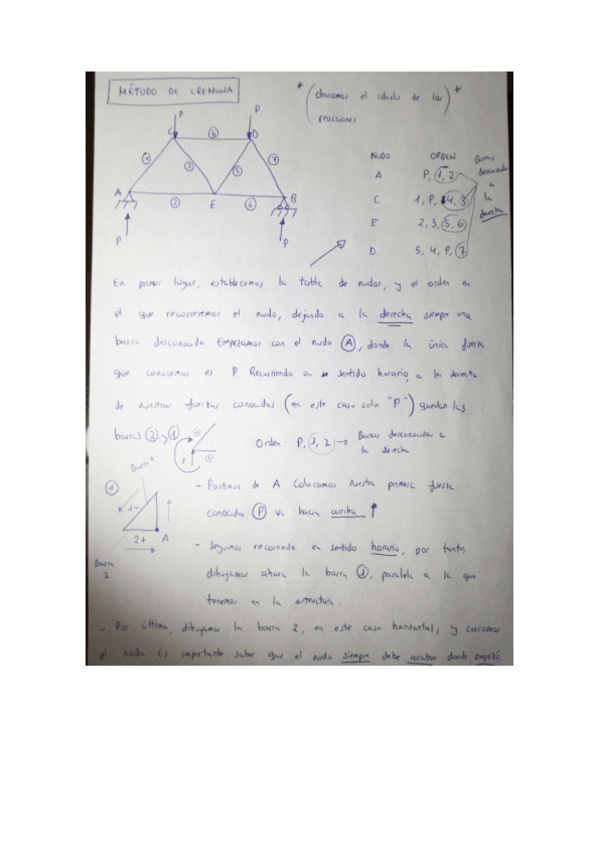 MÉTODO DE CREMONA
* (obviamos el cálculo de las reacciones) *
P
P
C
4
D
1
3
5
7
A
2
E
6
B
P
P
NUDO ORDEN
A P, 1, 2
C 1, P, 4, 3
E 2, 3, 5, 6
D 5, 4, P, 7
Barras
desconocidas
a
la
derecha
En primer lugar, establecemos la tabla de nudos, y el orden en
el que recorreremos el nudo, dejando a la derecha siempre una
barra desconocida Empezamos con el nudo A, donde la única fuerza
que conocemos es P Recorriendo en sentido horario, a la derecha
de nuestras fuerzas conocidas (en este caso solo "P") quedan las
barras 2 y 1
P
Orden: P, 1, 2 → Barras desconocidas a
la derecha
Barra 1
1
1-
2+
A
Barra
2
- Partimos de A Colocamos nuestra primera fuerza
conocida P va hacia arriba ↑
- Seguimos recorriendo en sentido horario, por tanto,
dibujamos ahora la barra 1, paralela a la que
tenemos en la estructura.
- Por último, dibujamos la barra 2, en este caso horizontal, y cerramos
el nudo Es importante saber que el nudo siempre debe acabar donde empezó